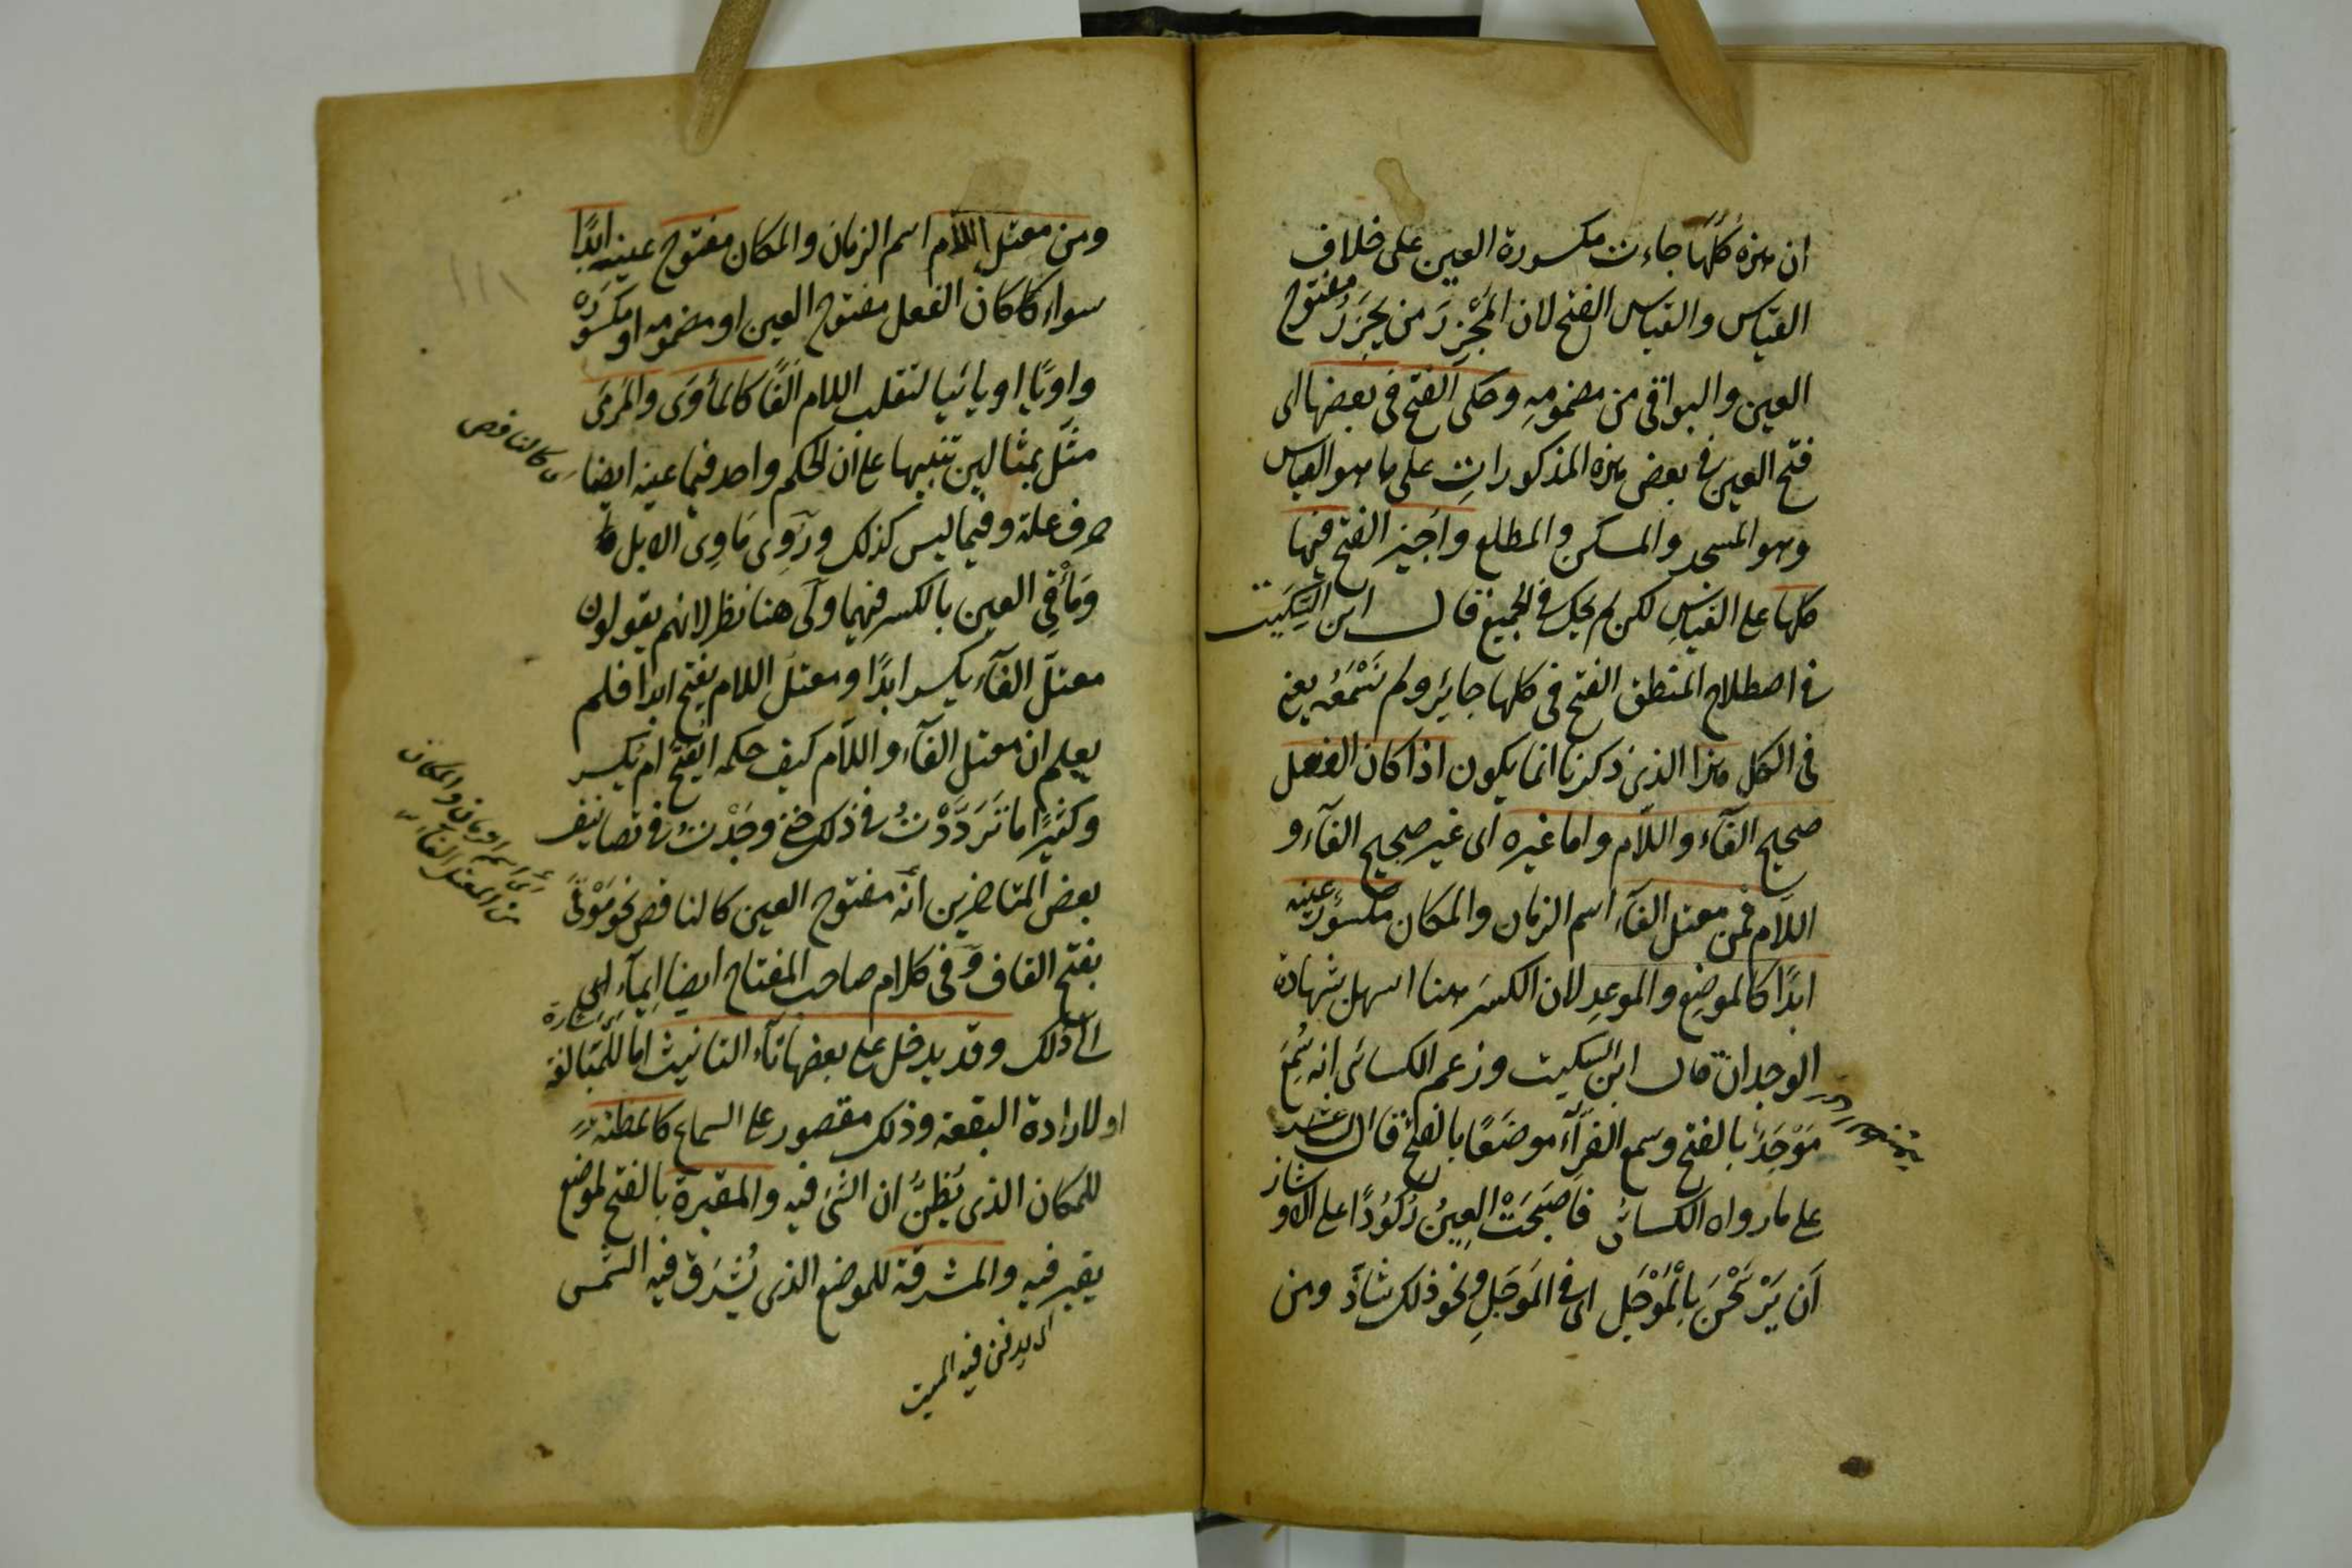 ان هزه كُلّهَا جاءت مكسورة العين على خلاف
القياس والقياس الفتح لان المَجْزِرَ من يَجْزِرُ مفتوح
العين والبواقى من مضمومهِ وحكى الفتح فى بعضها اى
فتح العين فى بعض هزه المذكوراتِ على ما هو القياس
وهو المسجد والمسكن والمطلع واُجيز الفتح فيها
كلها على القياسِ لكن لم يحك فى الجميع قال ابن السِّكِّيت
فى اصطلاح المنطق الفتح فى كلها جايئز ولم نَسْمَعْه يعنى
فى الكل هزا الذى ذكرنا انما يكون اذا كان الفعل
صحيح الفآء واللآم واما غيره اى غير صحيح الفآء و
اللآم فمن معتل الفآء اسم الزمان والمكان مكسورٌ عينه
ابدًا كالموضِع والموعِد لان الكسرَ هنا اسهل بشهادة
الوجدان قال ابن السكيت وزعم الكسائى انه سُمِعَ
مَوْجَدَ بالفتح وسمع الفرّآءُ موضَعًا بالفتح قال الشاعر
على مارواه الكسائى فَاَصْبَحَتْ العِينُ رُكُوْدًا على الاوشاز
اَن يَرْسَخْنَ بِالْمَوْحَلِ اى فى المَوحَلِ ونحو ذلك شاذّ ومن
ومن معتل اللام اسم الزمان والمكان مفتوح عينه ابدًا
سواء كاكان الفعل مفتوح العين او مضمومه او مكسوره
واويًا او يائيا لتقلب اللام الَفًا كالمأوَى والمَرمَى
مثّل بمثالين تنبيها على ان الحكم واحد فيما عينه ايضا
حرف علة وفيما ليس كذلك ورُوِى مَاوِى الابل
وَمَأْقِى العين بالكسر فيهما ولى هنا نظر لانهم يقولون
معتل الفآء يكسر ابدًا ومعتل اللام يفتح ابدا فلم
يعلم ان معتل الفآء واللآم كيف حكمه ايُفتح ام يُكسر
وكثيرًا ما تَرَدَّدْتُ فى ذلك حتى وجَدْتُ فى تصانيف
بعض المتاخرين انّه مفتوح العين كالناقص نحو مَوْقًى
بفتح القاف وَفى كلام صاحب المفتاح ايضا ايمآء الى
اى اشارة
الى ذلك وقد يدخل على بعضها تآء التانيث اما للمبَالغة
او لارادة البقعة وذلك مقصور على السماع كالمظنّة
للمكان الذى يُظَنُّ ان الشئ فيه والمقبرة بالفتح لموضع
يقبر فيه والمشرقة للموضع الذى يُشْرَق فيه الشمس
اى يدفن فيه الميت
اى كالناقص
اى اسم الزمان والمكان
من المعتل الفآء